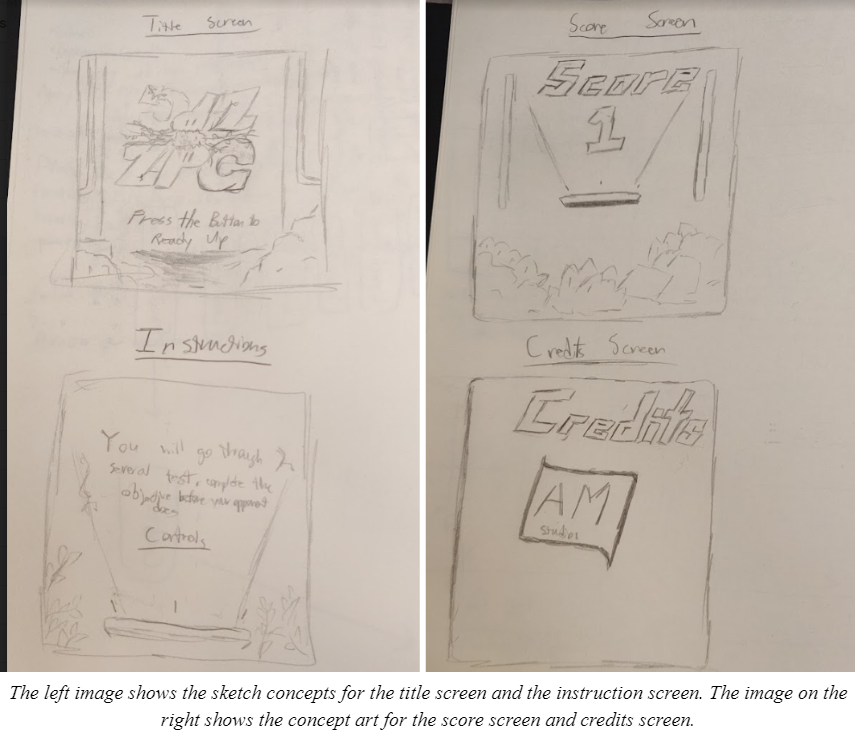 Title Screen
Press the Button to
Ready Up
Instructions
You will go through
several test, complete the
objective before your opponent
does
Controls
Score Screen
Score
1
Credits Screen
Credits
AM
studios
The left image shows the sketch concepts for the title screen and the instruction screen. The image on the
right shows the concept art for the score screen and credits screen.